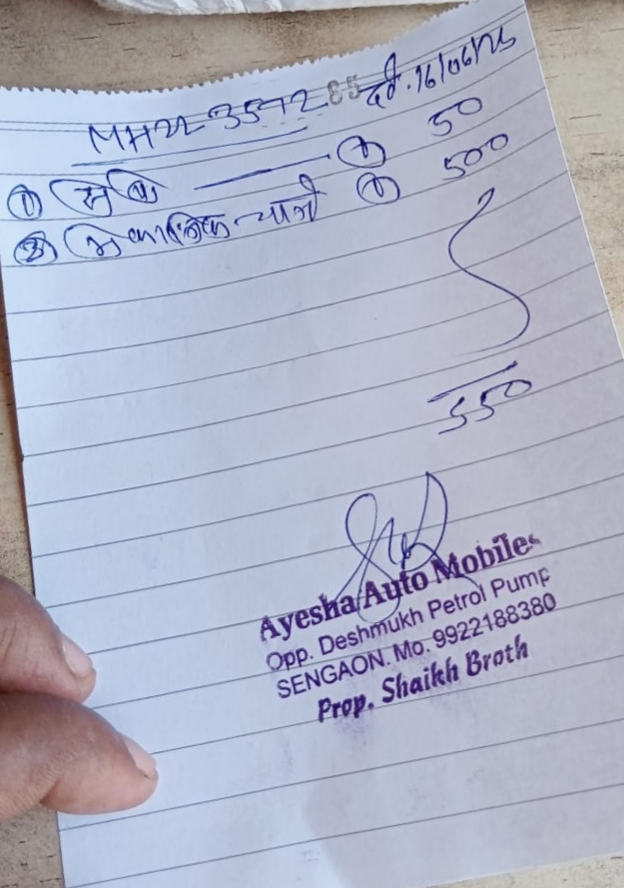 MH22-3572 85 दि. 16/06/25
① ① 50
② मेकानिक चार्ज ① 500
550
Ayesha Auto Mobiles
Opp. Deshmukh Petrol Pump
SENGAON. Mo. 9922188380
Prop. Shaikh Broth